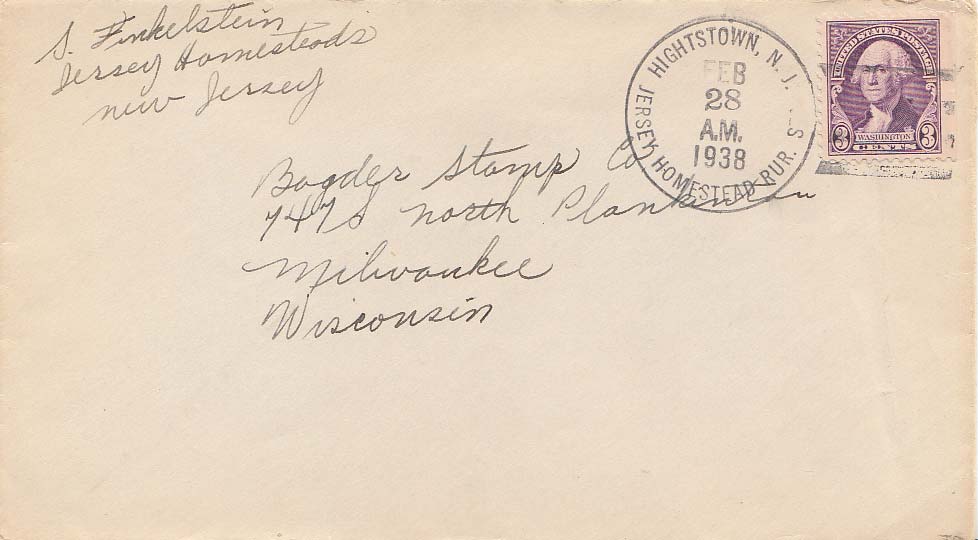 S. Finkelstein
Jersey Homesteads
New Jersey
HIGHTSTOWN, N. J.
FEB
28
A.M.
1938
JERSEY HOMESTEAD RUR. S
UNITED STATES POSTAGE
3 WASHINGTON 3
CENTS
Stamp Co
North
Milwaukee
Wisconsin